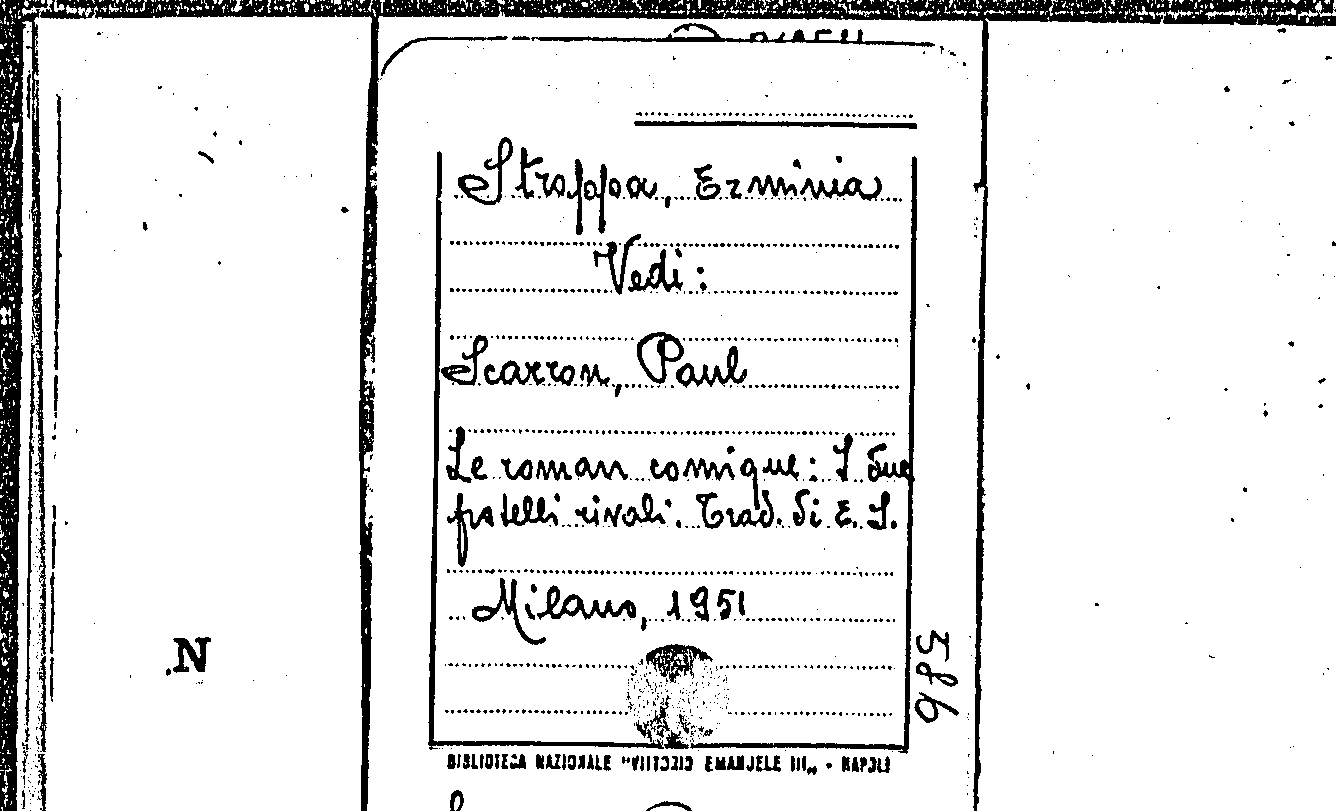 Stroppa, Erminia
Vedi:
Scarron, Paul
Le roman comique: I due
fratelli rivali. Trad. di E. S.
Milano, 1951
N
586
BIBLIOTECA NAZIONALE "VITTORIO EMANUELE III„ - NAPOLI